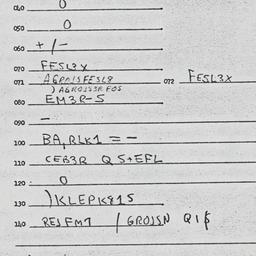 040 0
050 0
060 + / -
070 FESL3X
071 072 FESL3X
080 EM3R-S
090 -
100 BA, RLK1 = -
110 CEB3R QS+EFL
120 0
130 )KLEPK815
140 REJFM7 / GROJSN